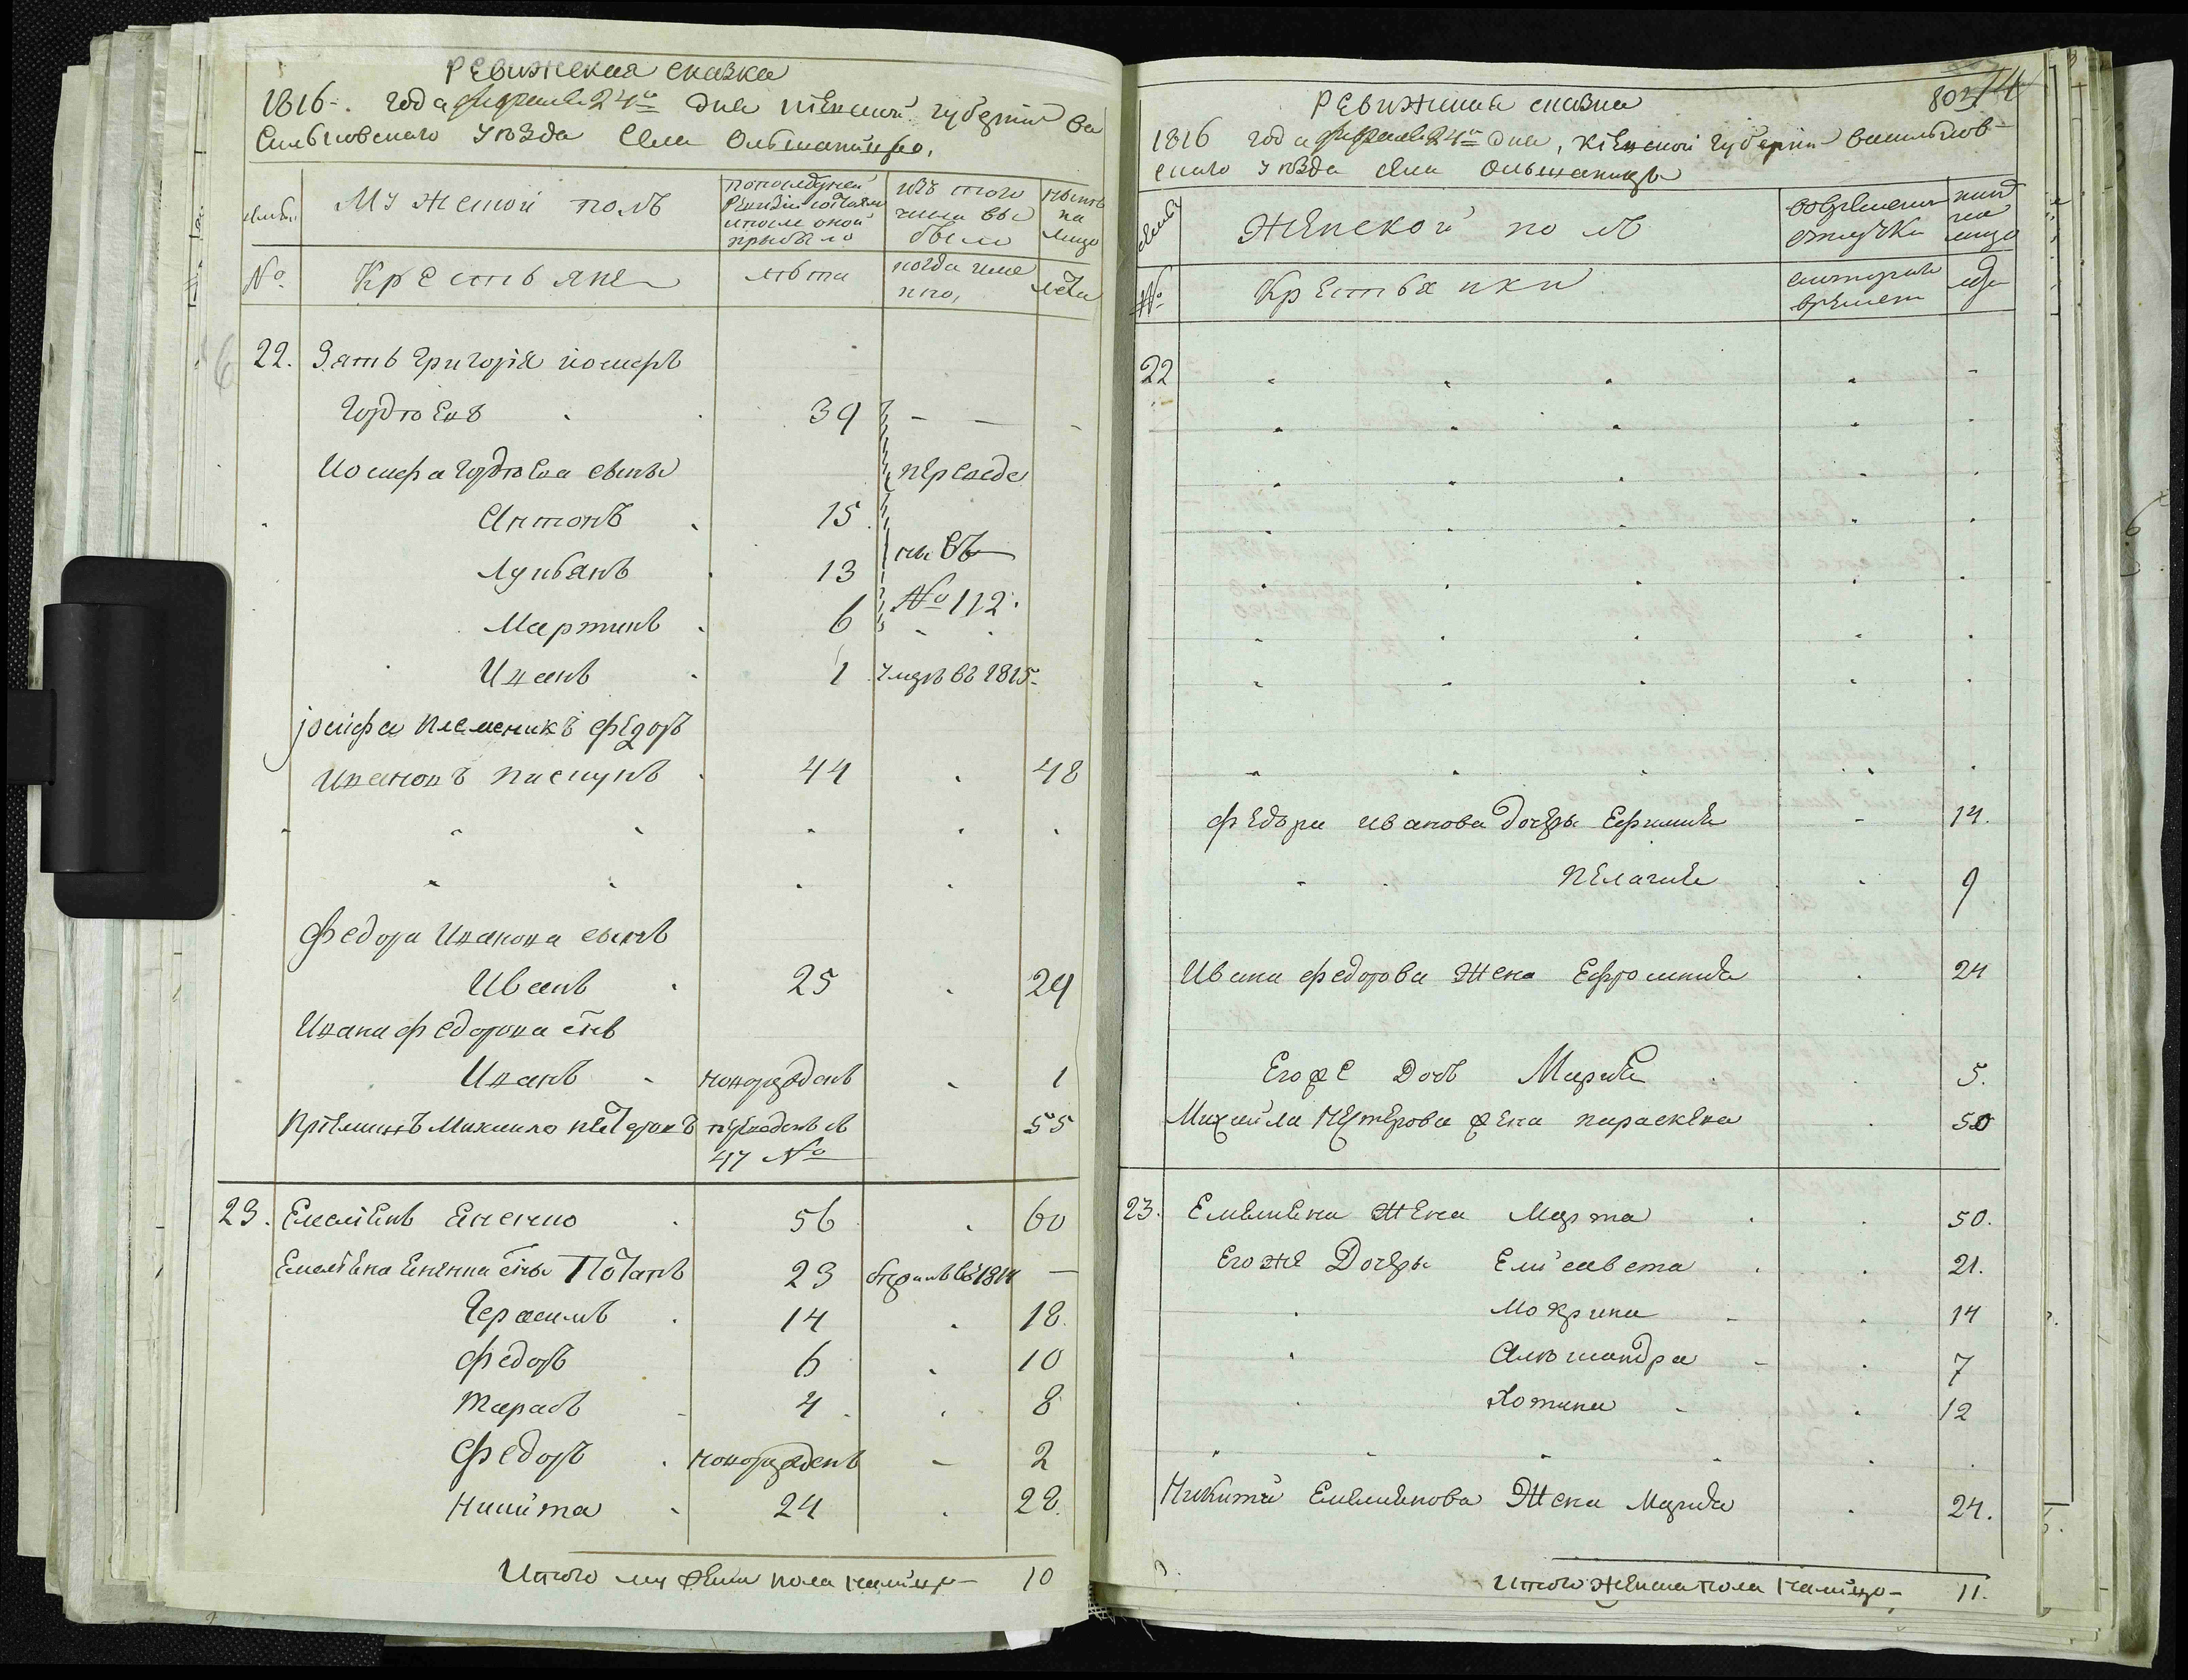 РЕвижская сказка
1816-. года февраля 24го дня кіевской губерніи ва
сильковскаго уѣзда села Ольшаницы,
семьи
Мужеской полъ
попоследней ревизіи состояло и после оной прибыло
изъ того числа выбыло
ныне на лицо
№
Крестьяне
лѣта
когда имено,
лета
22. Зять григорія иосифъ
Гордѣевъ 39 — — -
Иосифа гордѣева сыны переведе
Антонъ 15
ны въ
Лукьянъ 13
№ 112.
Мартинъ 6
Иванъ 1 умръ въ 1815-
јосифа племеникъ федоръ
Ивановъ пискунъ 44 48
Федора Иванова сынъ
Иванъ 25 29
Ивана федорова снъ
Иванъ новорожденъ 1
Пріемишъ Михаило нестеровъ переведенъ съ 55
47 №
23. Емеліянъ 56 60
Емеліяна сны Потапъ 23 въ 1814 —
Герасимъ 14 18.
Федоръ 6 10
Тарасъ 4 8
Федоръ новорожденъ - 2
Никита 24 28.
Итого мужеска пола налицо - 10
РЕвижская сказка 803 14
1816 года февраля 24го дня, кіевской губерніи васильков-
скаго уѣзда села Ольшаницы
семьи
Женской полъ
вовременной отлучке
ныне на лицо
№
Крестьянки
скотораго времени
лета
22
федора иванова дочеры Ефимия - 14.
пелагия 9
Ивана федорова жена Ефросиния 24
Егоже дочь Мария 5.
Михайла Нестерова жена параскева 50
23. Емелияна жена Марта 50.
Егоже дочеры Елисавета 21.
Мокрина 14
Александра 7
Хотина 12
Никиты Емелиянова жена Мария 24.
Итого женска пола налицо - 11.